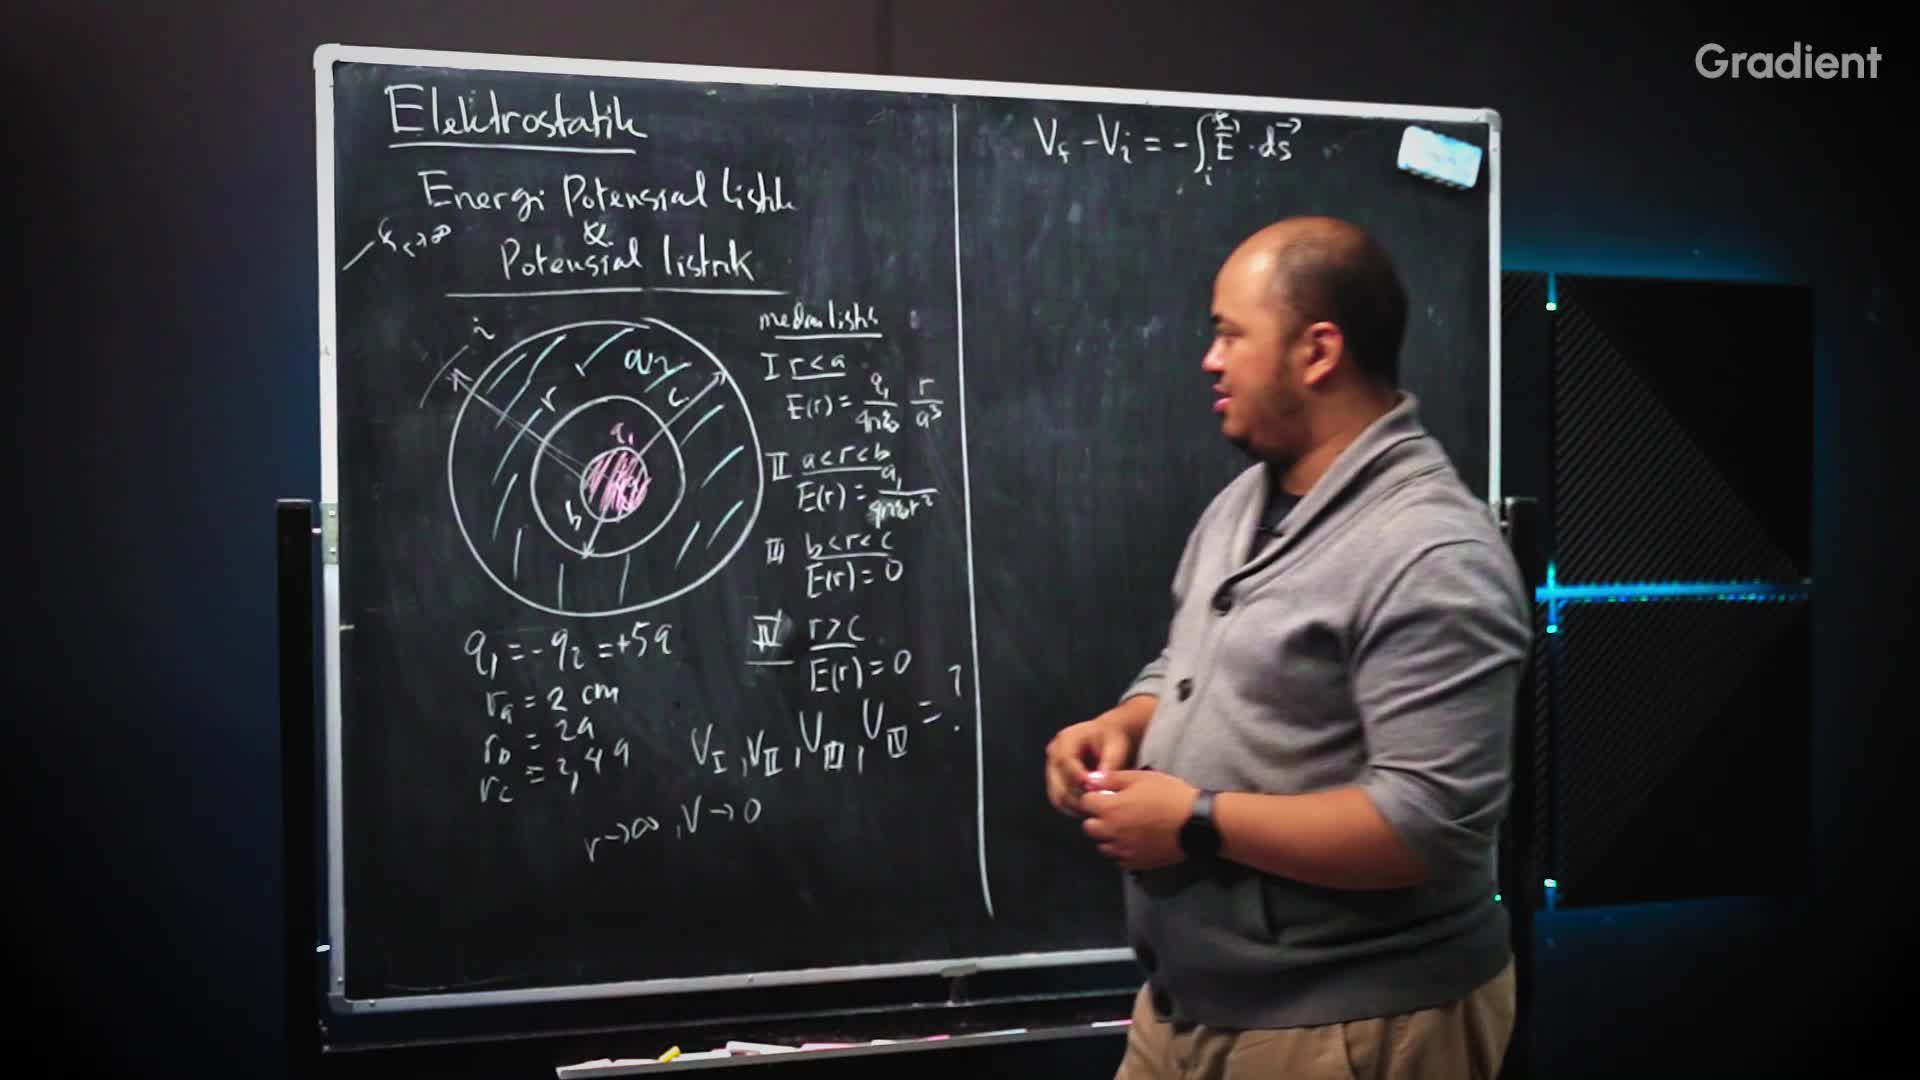 Gradient
Elektrostatik
Energi Potensial listrik
&
Potensial listrik
r → ∞
i
r
q2
c
q1
b
medan listrik
I r < a
E(r) = q1/4πε0 r/a³
II a < r < b
E(r) = q1/4πε0r²
III b < r < c
E(r) = 0
IV r > c
E(r) = 0
q1 = -q2 = +5q
ra = 2 cm
rb = 2a
rc = 2,4a
VI, VII, VIII, VIV = ?
r → ∞, V → 0
Vf - Vi = -∫if E⃗ · ds⃗